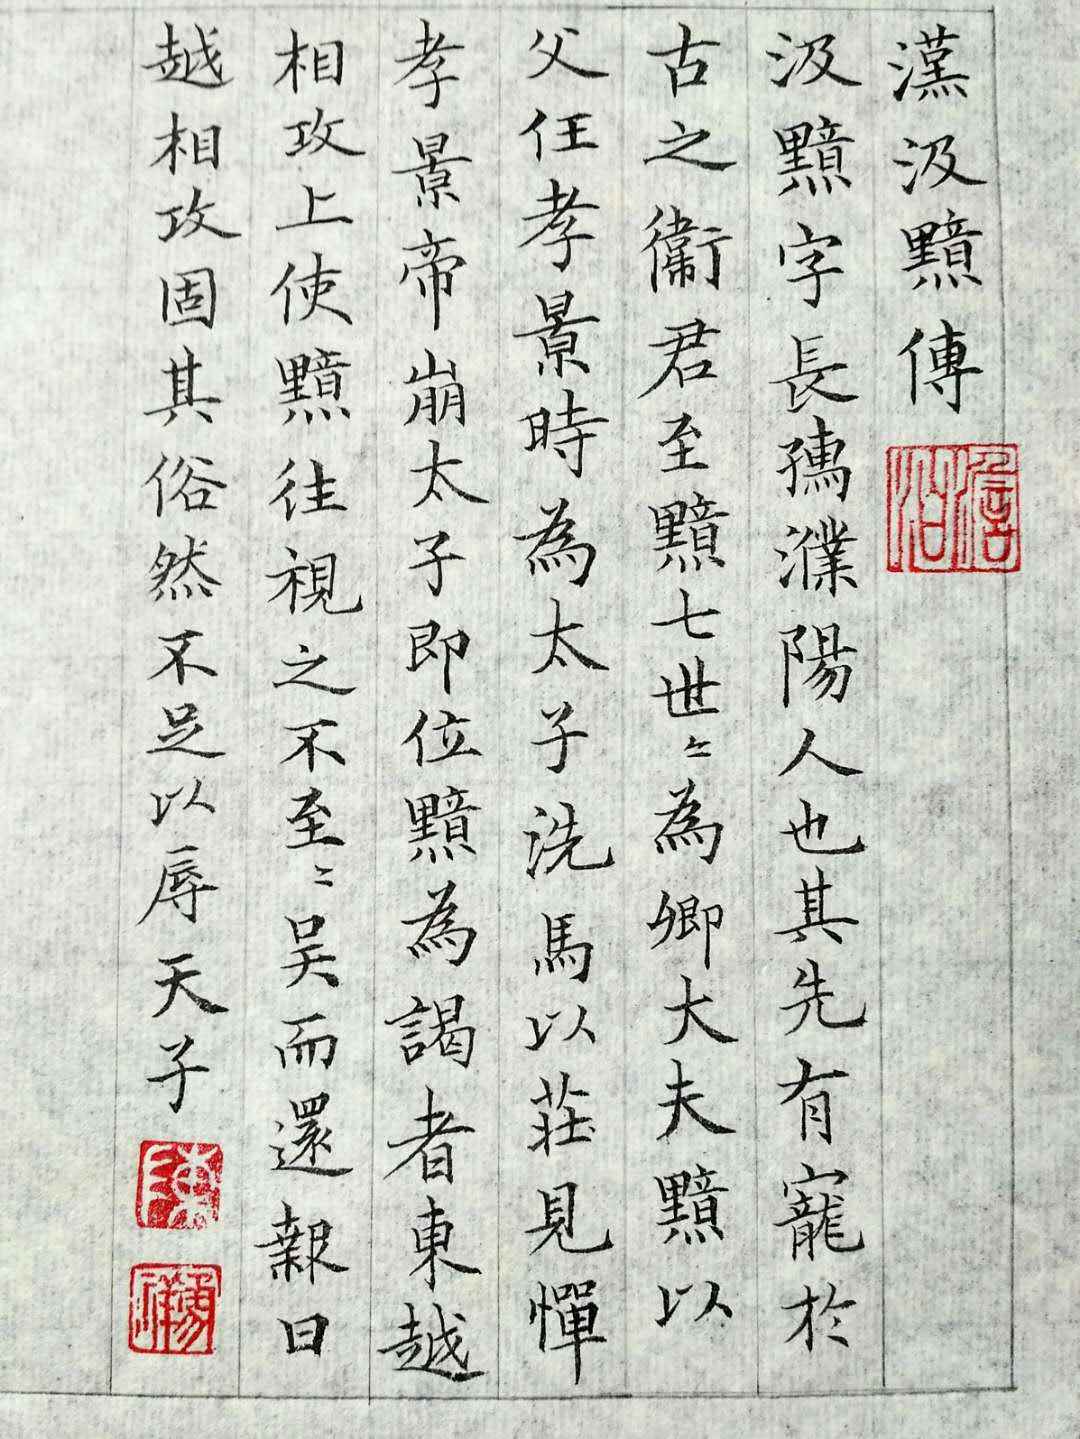 漢汲黯傳
汲黯字長孺濮陽人也其先有寵於
古之衞君至黯七世〻為卿大夫黯以
父任孝景時為太子洗馬以莊見憚
孝景帝崩太子即位黯為謁者東越
相攻上使黯往視之不至〻吳而還報曰
越相攻固其俗然不足以辱天子